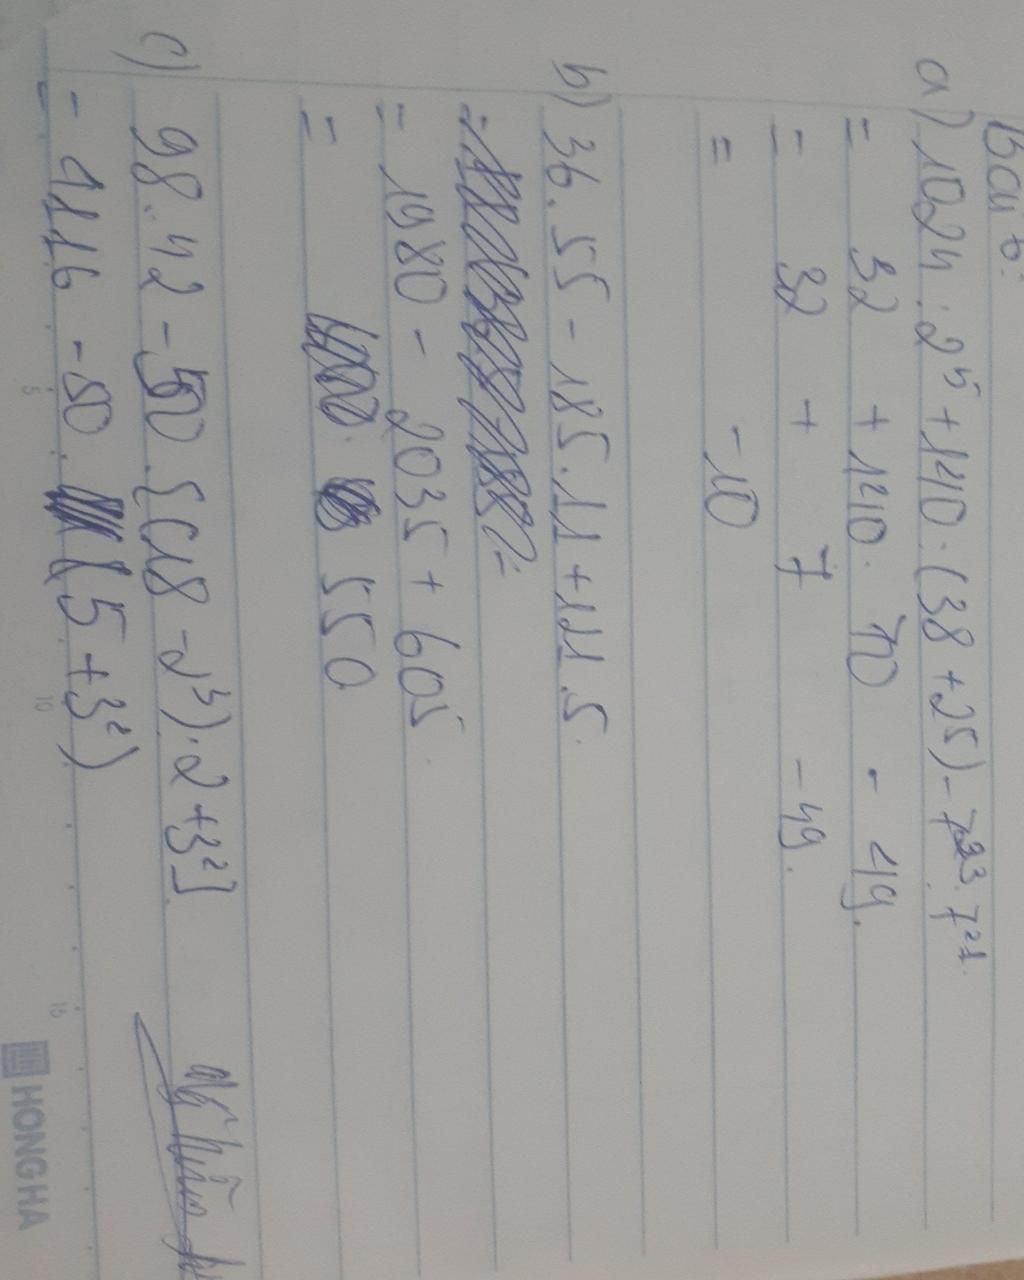 Bài 6:
a) 1024 : 2⁵ + 140 . (38 + 25) - 7²³ . 7²¹.
= 32 + 140 . 70 - 49.
= 32 + 7 - 49.
= -10
b) 36. 55 - 185. 11 + 121. 5.
= 1980 - 2035 + 605.
= 550
c) 98. 42 - 50 . [(18 - 2³) . 2 + 3²]
= 4116 - 50 . (5 + 3²)
HONG HA
5
10
15